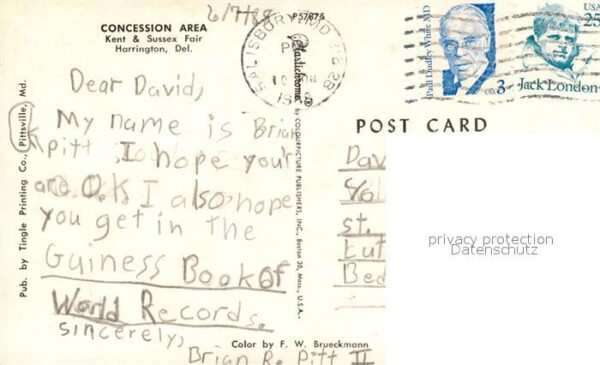 6/7/88
CONCESSION AREA
Kent & Sussex Fair
Harrington, Del.
Dear David,
My name is Brian
pitt. I hope you'r
are O.K I also hope
you get in the
Guiness Book of
World Records.
sincerely,
Brian R. Pitt II
Pub. by Tingle Printing Co., Pittsville, Md.
P57875
Plastichrome ®
by COLOURPICTURE PUBLISHERS, INC., Boston 30, Mass., U.S.A.
Color by F. W. Brueckmann
SALISBURY, MD
PM
Paul Dudley White MD
USA 3
USA 25
Jack London
POST CARD
Dav
st.
Bed
privacy protection
Datenschutz